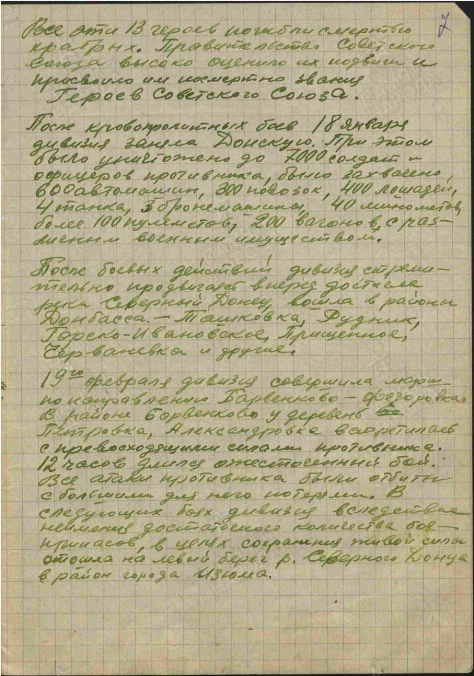 7
Все эти 13 героев погибли смертью
храбрых. Правительство Советского
Союза высоко оценило их подвиги и
присвоило им посмертно звания
Героев Советского Союза.
После кровопролитных боев 18 января
дивизия заняла Донскую. При этом
было уничтожено до 7000 солдат и
офицеров противника, было захвачено,
600 автомашин, 300 повозок, 400 лошадей,
4 танка, 3 бронемашины, 40 минометов,
более 100 пулеметов, 200 вагонов с раз-
личным военным имуществом.
После боевых действий дивизия стреми-
тельно продвигаясь вперед достигла
реки Северный Донец, вошла в районы
Донбасса – Тошковка, Рудник,
Горско-Ивановское,
и другие.
19го февраля дивизия совершила марш
по направлению Барвенково –
В районе Барвенково у деревень
Петровка, Александровка встретилась
с превосходящими силами противника.
12 часов длился ожесточенный бой.
Все атаки противника были отбиты
с большими для него потерями. В
следующих боях дивизия вследствие
неимения достаточного количества бое-
припасов, в целях сохранения живой силы
отошла на левый берег р. Северного Донца
в район города Изюма.